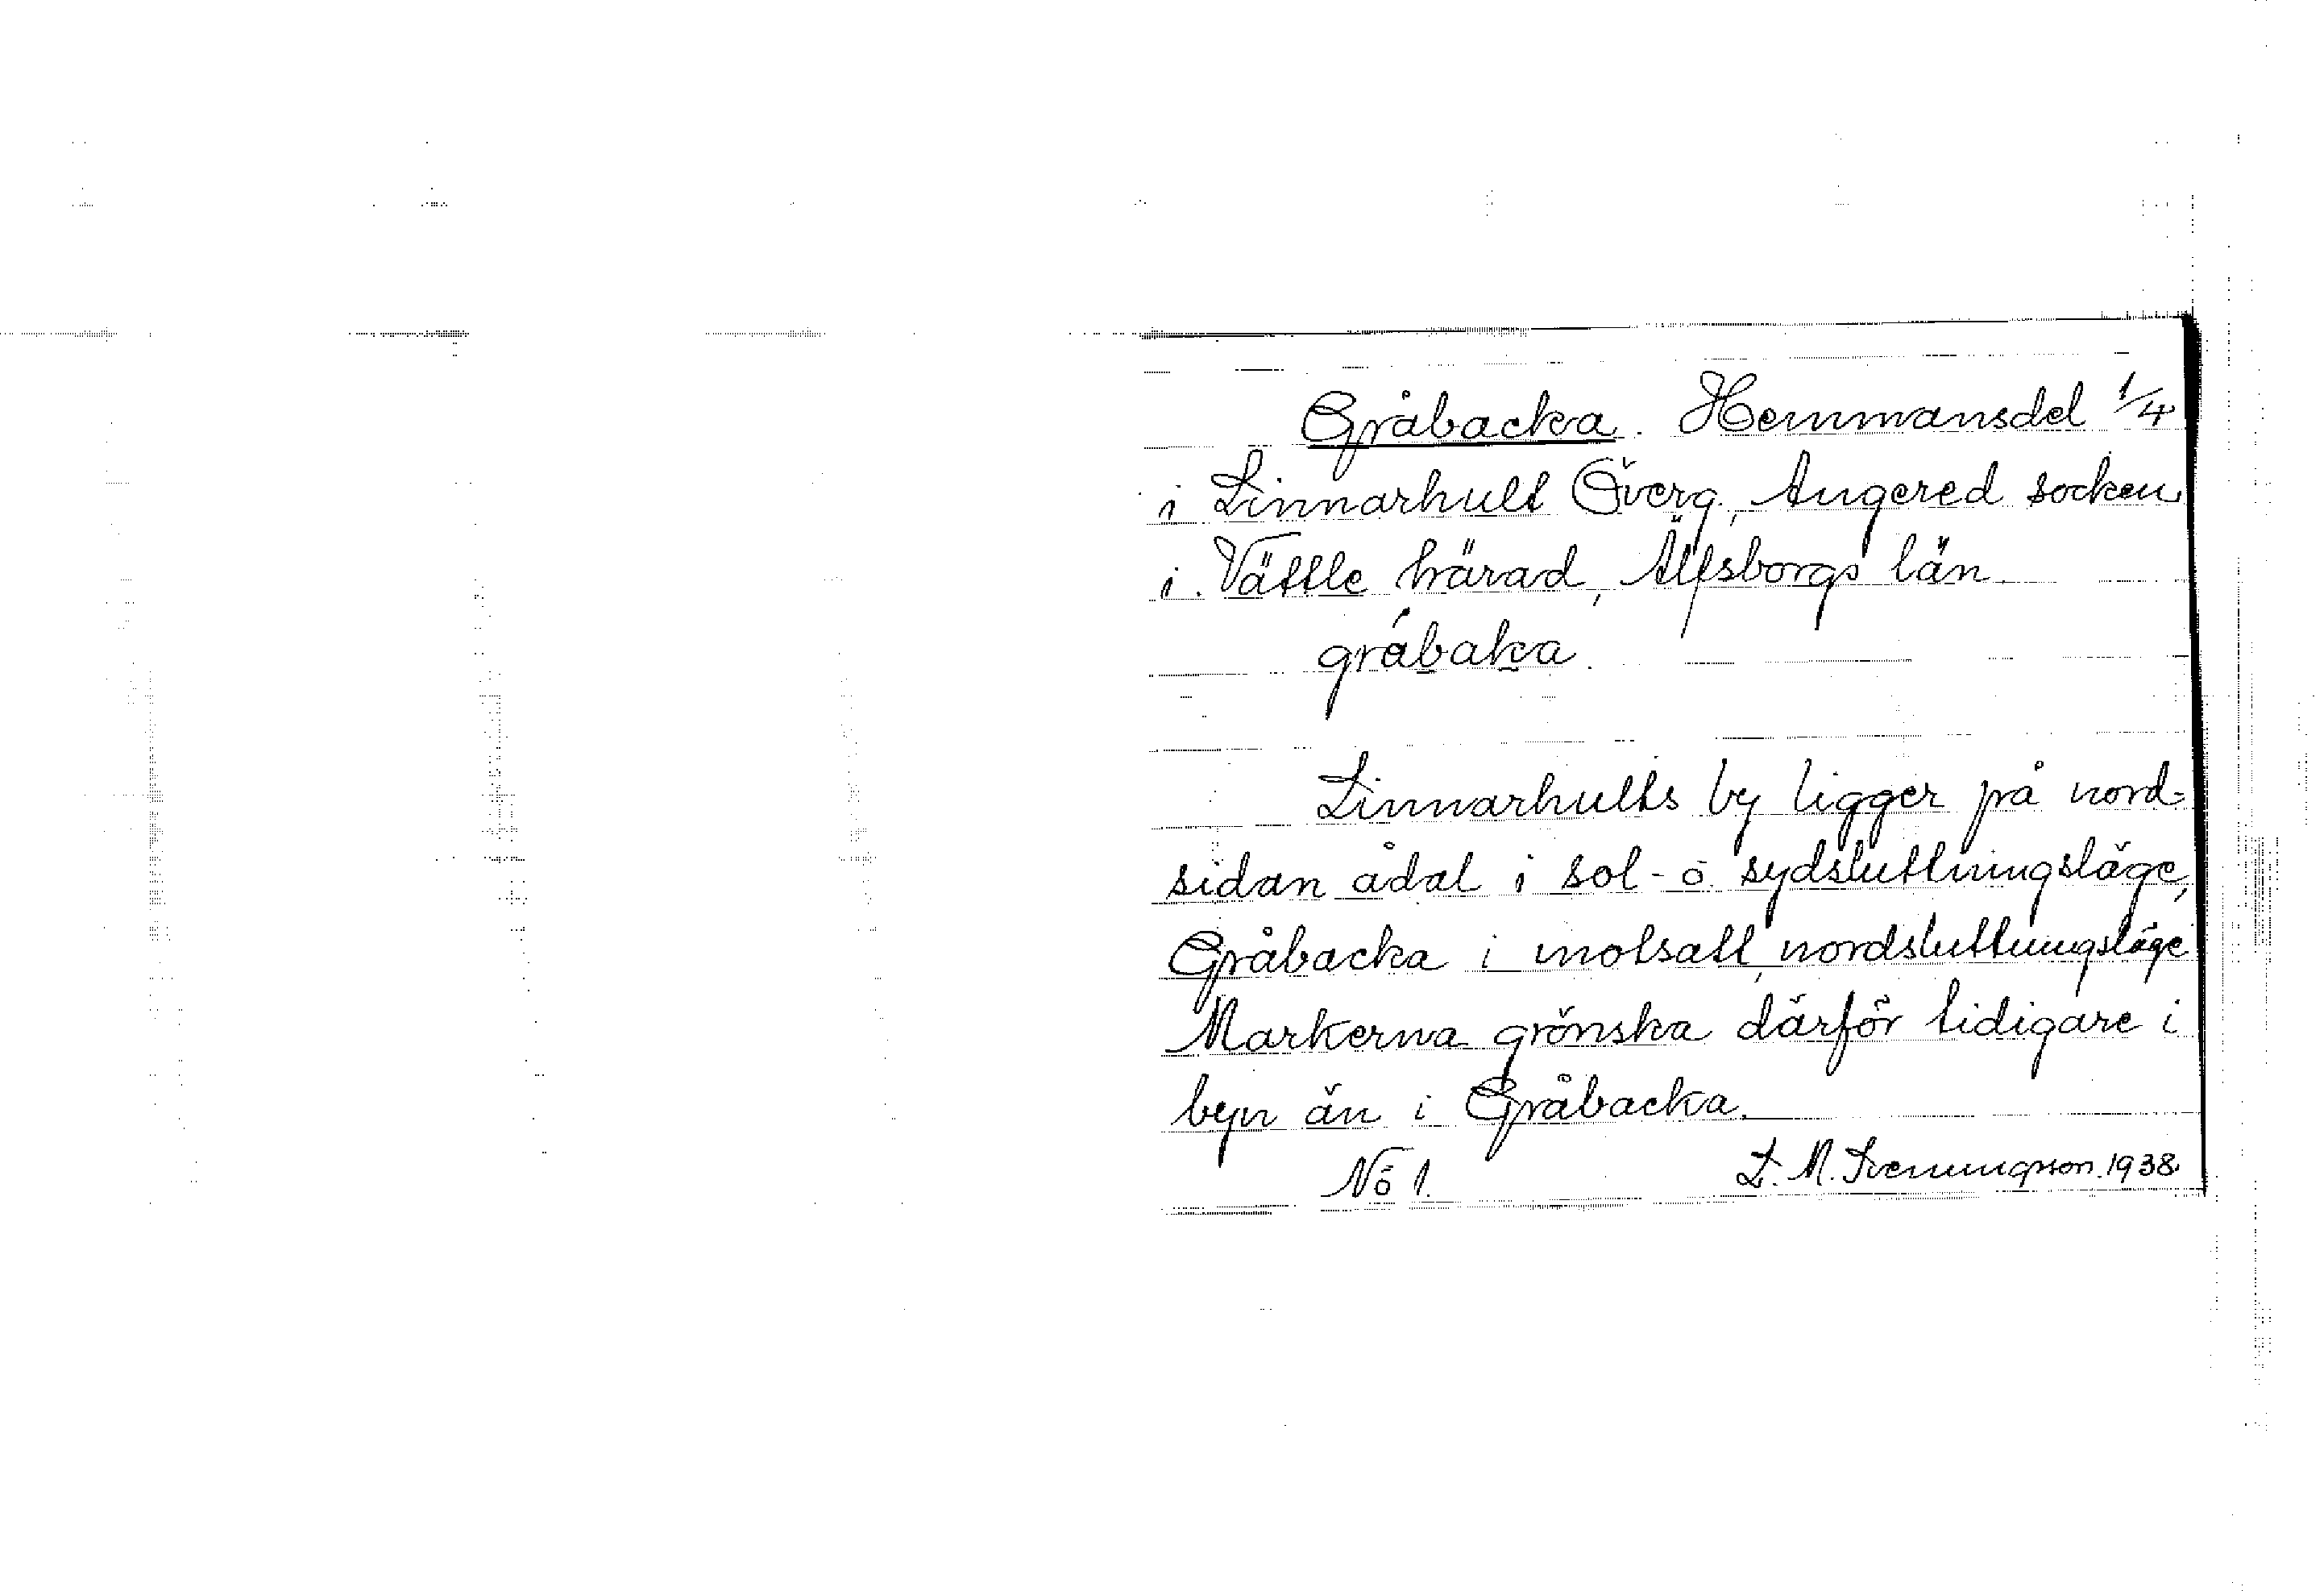 Gråbacka. Hemmansdel 1/4
i Linnarhult Överg., Angered socken
i Vättle härad, Älfsborgs län.
gråbaka.
Linnarhults by ligger på nord-
sidan ådal i sol- o. sydsluttningsläge,
Gråbacka i motsatt, nordsluttningsläge
Markerna grönska därför tidigare i
byn än i Gråbacka.
No 1. L. M. Svenungsson. 1938.